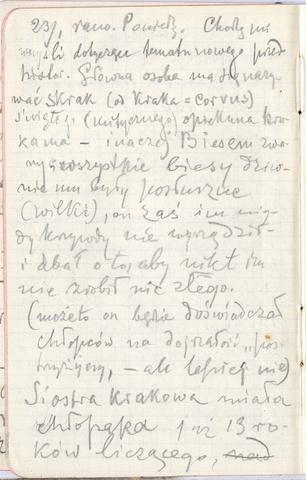 23/, rano. Powiedz. Chodzą mi
myśli dotyczące tematu nowego przed
histor. Główna osoba ma się nazy-
wać SKRAK (od Kraka = corvus)
święty (mitycznego) opiekuna kru-
kama – inaczej Biesem zwa-
ny, wszystkie biesy dziw-
nie mu były posłuszne
(wilki), on zaś im nig-
dy krzywdy nie wyrządził
i dbał o to, aby nikt im
nie zrobił nic złego.
(może to on będzie doświadczał
chłopców na dojrzałość „pos-
trzyżyny, – ale lepiej nie)
Siostra Krakowa miała
chłopaka już 13 ro-
ków liczącego,